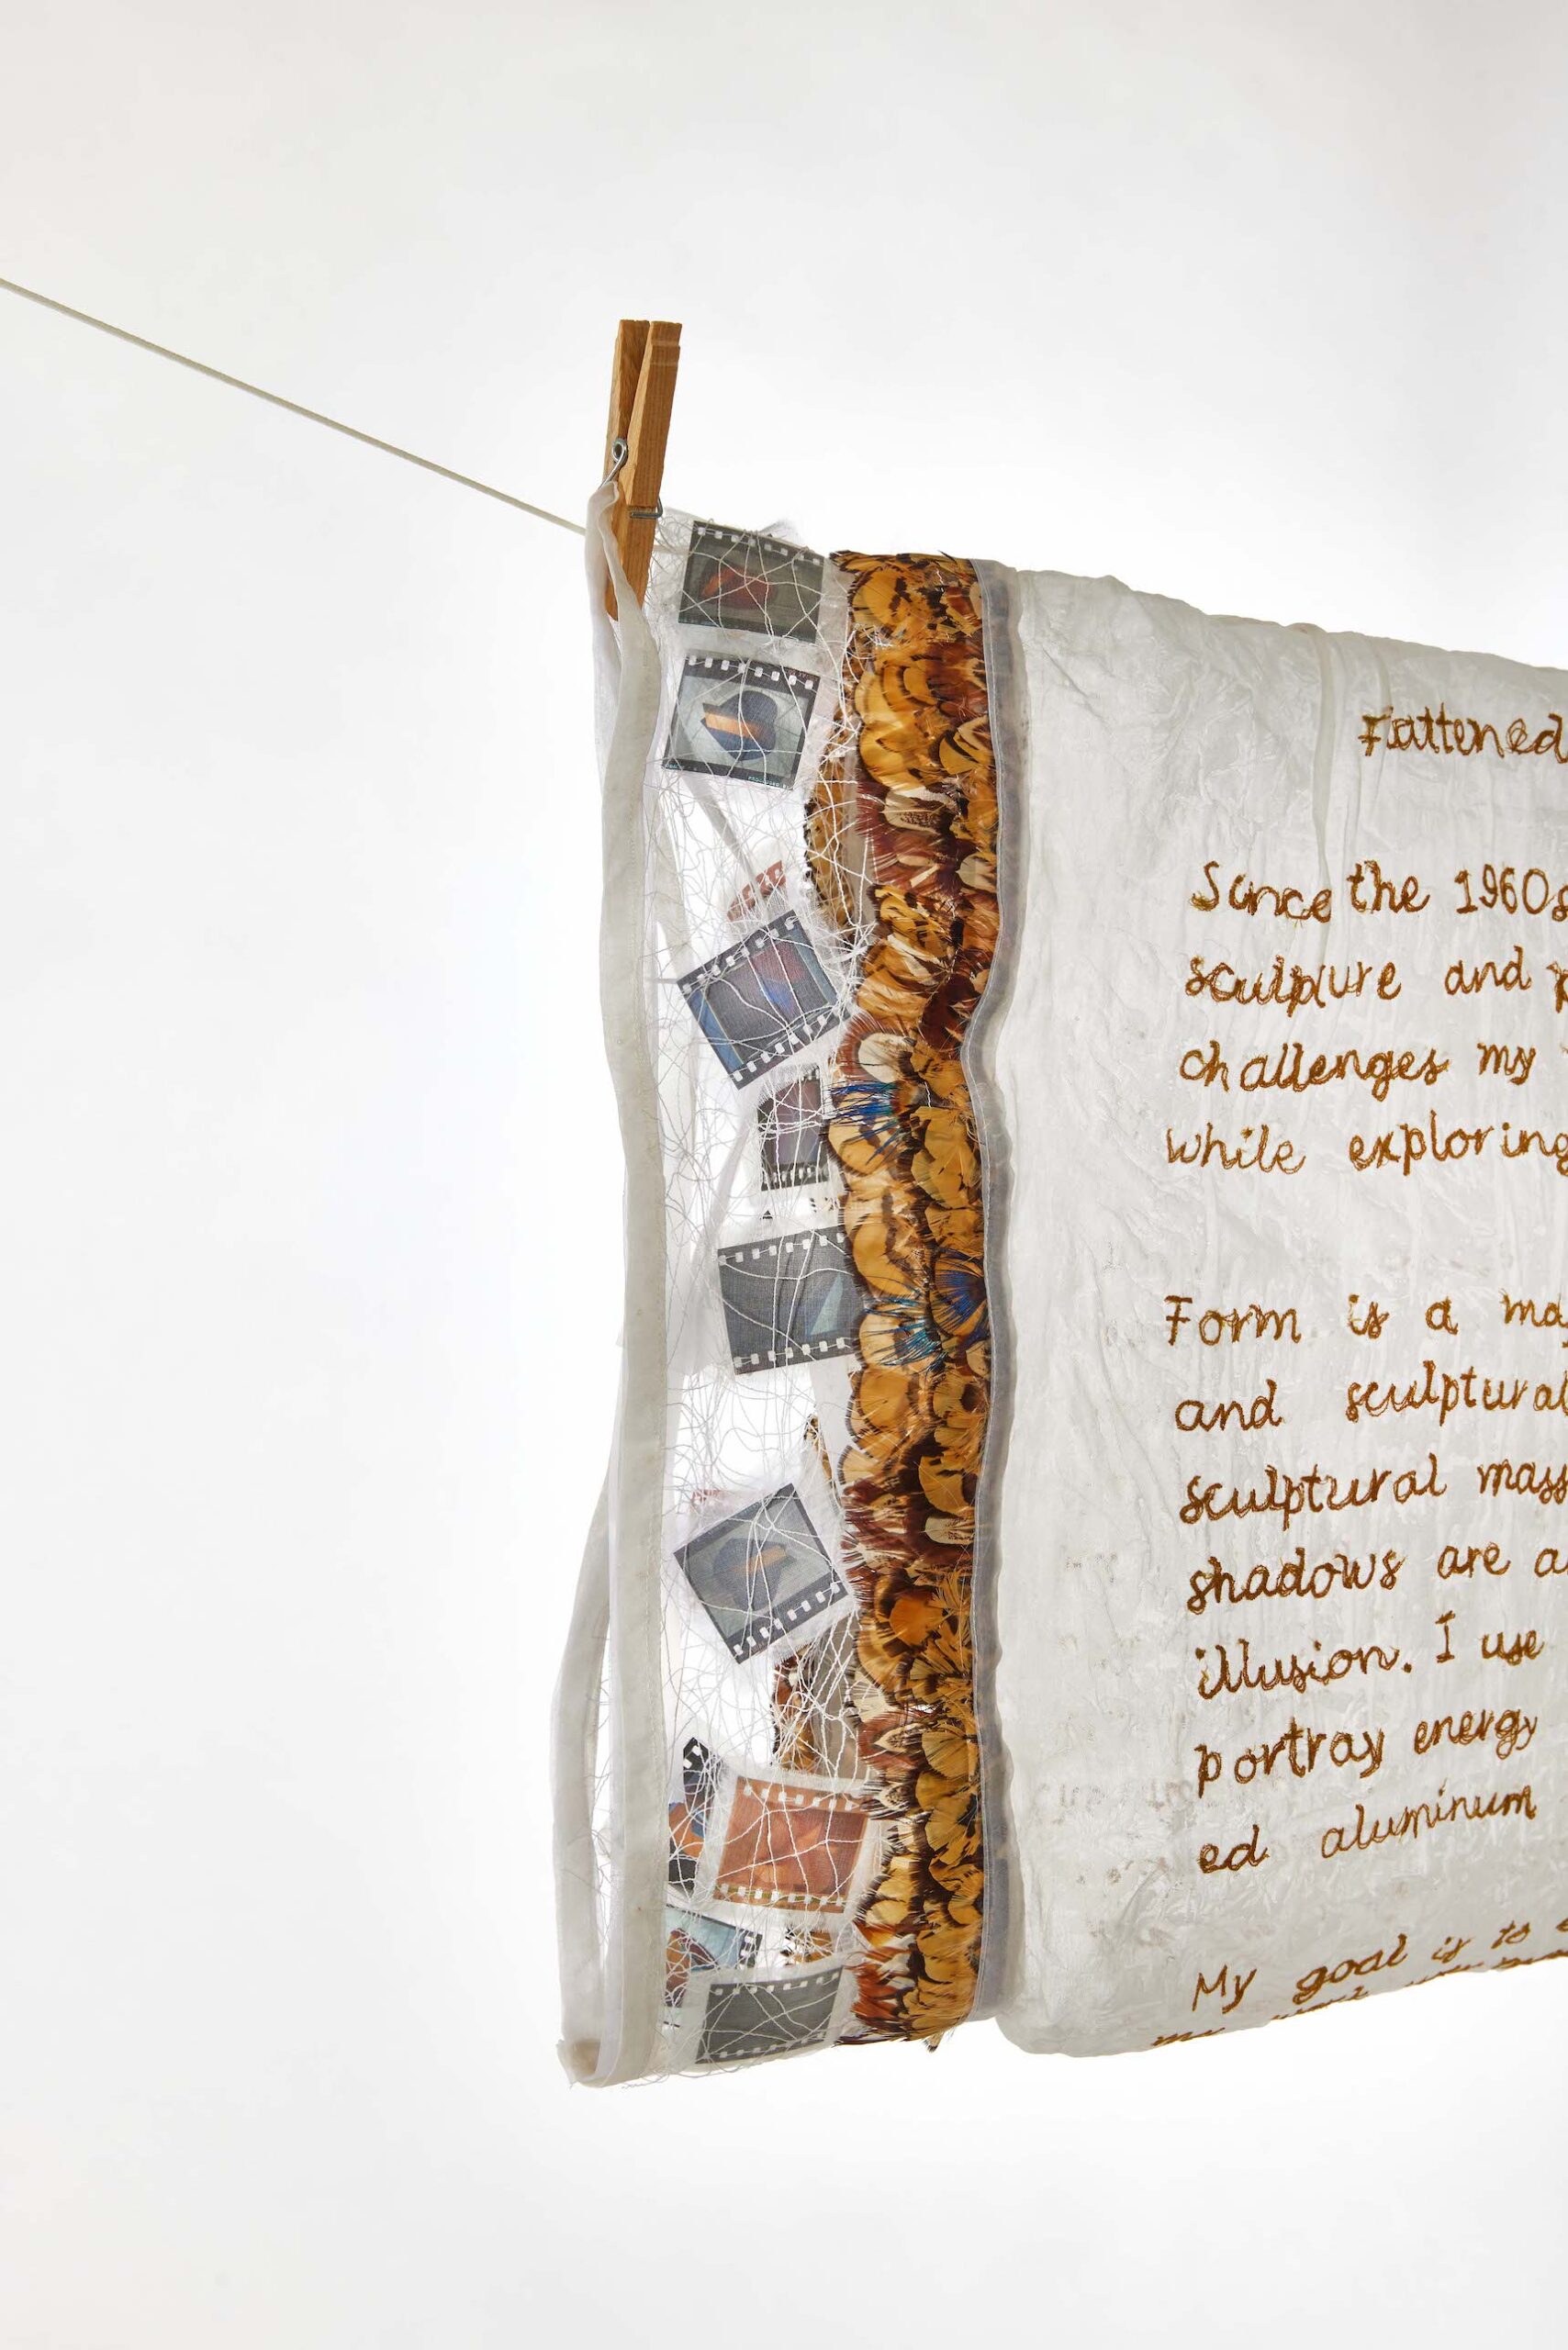 Flattened
Since the 1960s
sculpture and
challenges my
while exploring
Form is a
and sculptural
sculptural mass
shadows are
illusion. I use
portray energy
ed aluminum
My goal is to